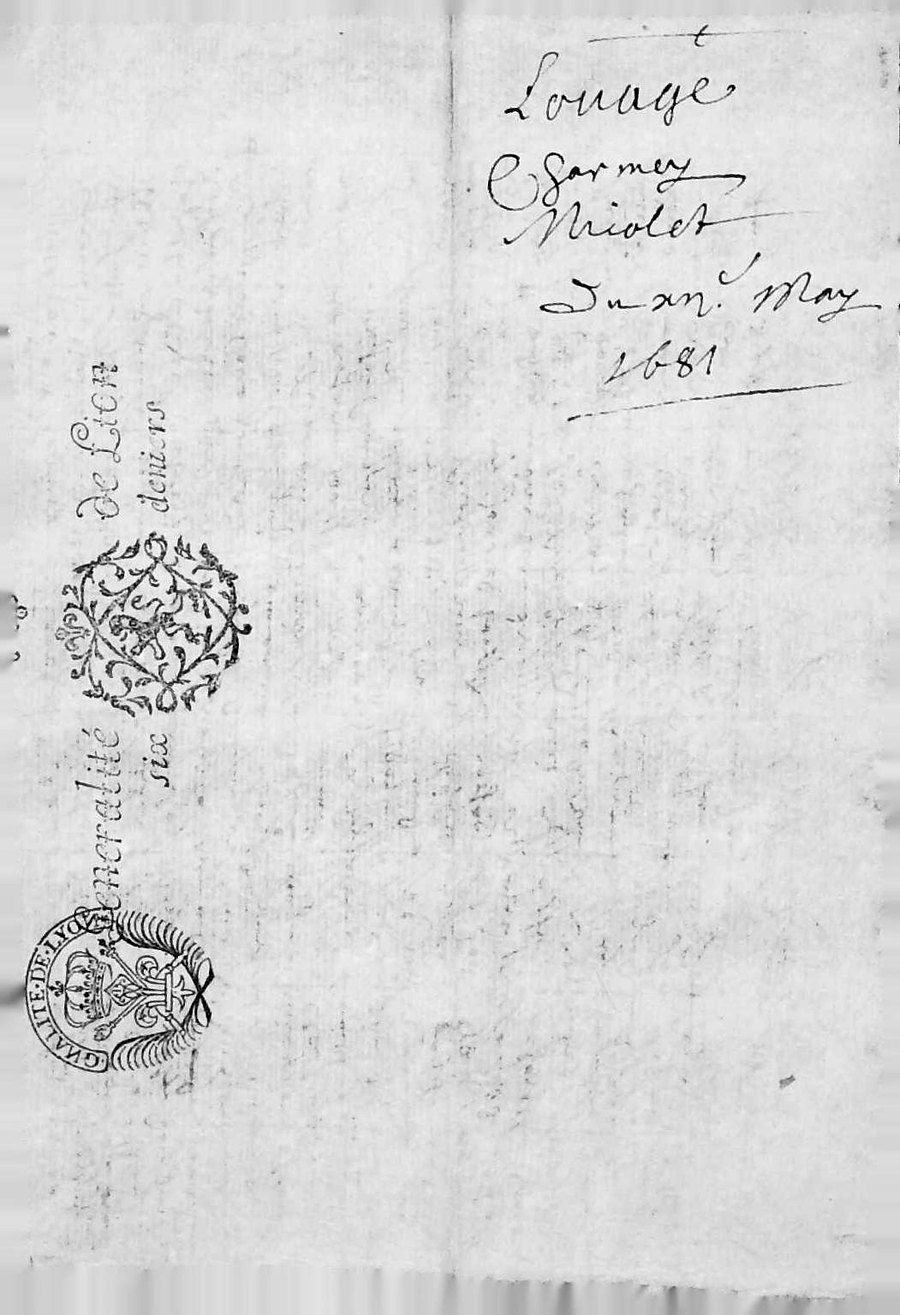 Louage
Charmey
Miolet
Du May
1681
Generalité de Lion
six deniers
GNALITE·DE·LYON